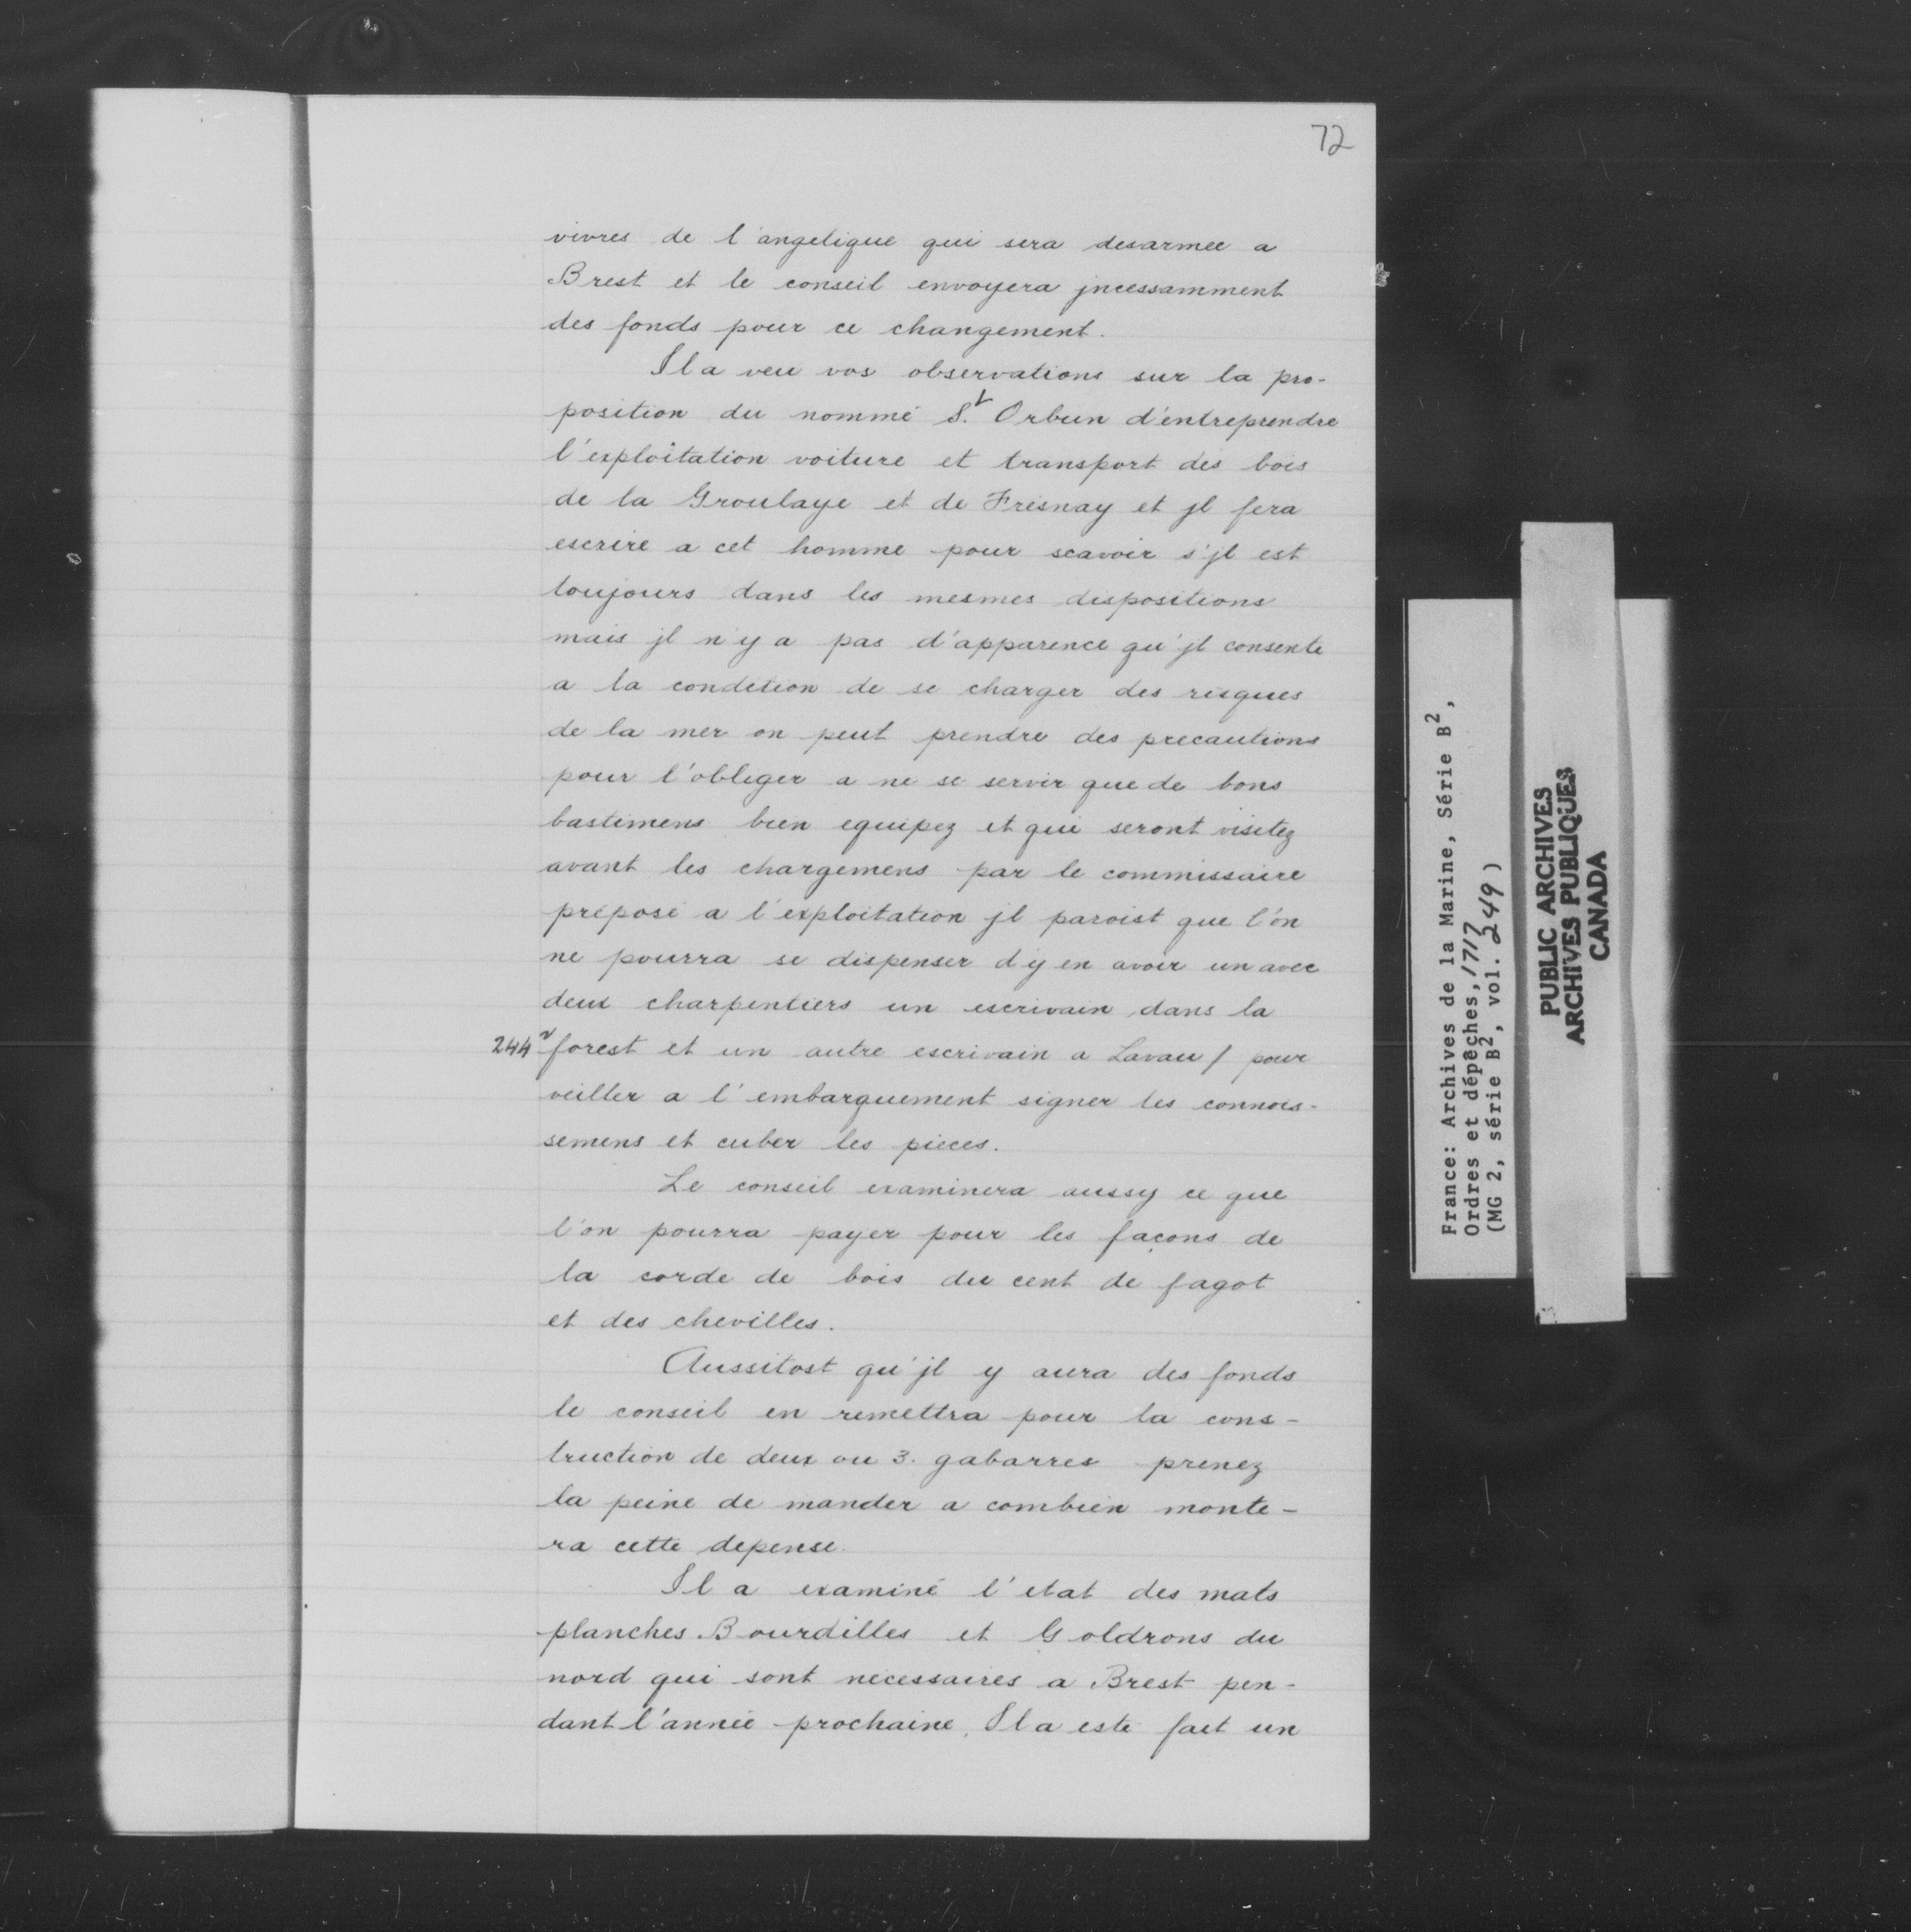 72
vivres de l'angelique qui sera desarmee a
Brest et le conseil envoyera jncessamment
des fonds pour ce changement.
Il a veu vos observations sur la pro-
position du nommé St. Orbun d'entreprendre
l'exploitation voiture et transport des bois
de la Groulaye et de Fresnay et jl fera
escrire a cet homme pour scavoir s'jl est
toujours dans les mesmes dispositions
mais jl n'y a pas d'apparence qu'jl consente
a la condition de se charger des risques
de la mer on peut prendre des precautions
pour l'obliger a ne se servir que de bons
bastimens bien equipez et qui seront visitez
avant les chargemens par le commissaire
préposé a l'exploitation jl paroist que l'on
ne pourra se dispenser d'y en avoir un avec
deux charpentiers un escrivain dans la
244v forest et un autre escrivain a Lavau / pour
veiller a l'embarquement signer les connois-
semens et cuber les pieces.
Le conseil examinera aussy ce que
l'on pourra payer pour les façons de
la corde de bois du cent de fagot
et des chevilles.
Aussitost qu'jl y aura des fonds
le conseil en remettra pour la cons-
truction de deux ou 3. gabarres prenez
la peine de mander a combien monte-
ra cette depense.
Il a examiné l'etat des mats
planches Bourdilles et Goldrons du
nord qui sont necessaires a Brest pen-
dant l'année prochaine, Il a esté fait un
France: Archives de la Marine, Série B2,
Ordres et dépêches, 1717
(MG 2, série B2, vol. 249)
PUBLIC ARCHIVES
ARCHIVES PUBLIQUES
CANADA